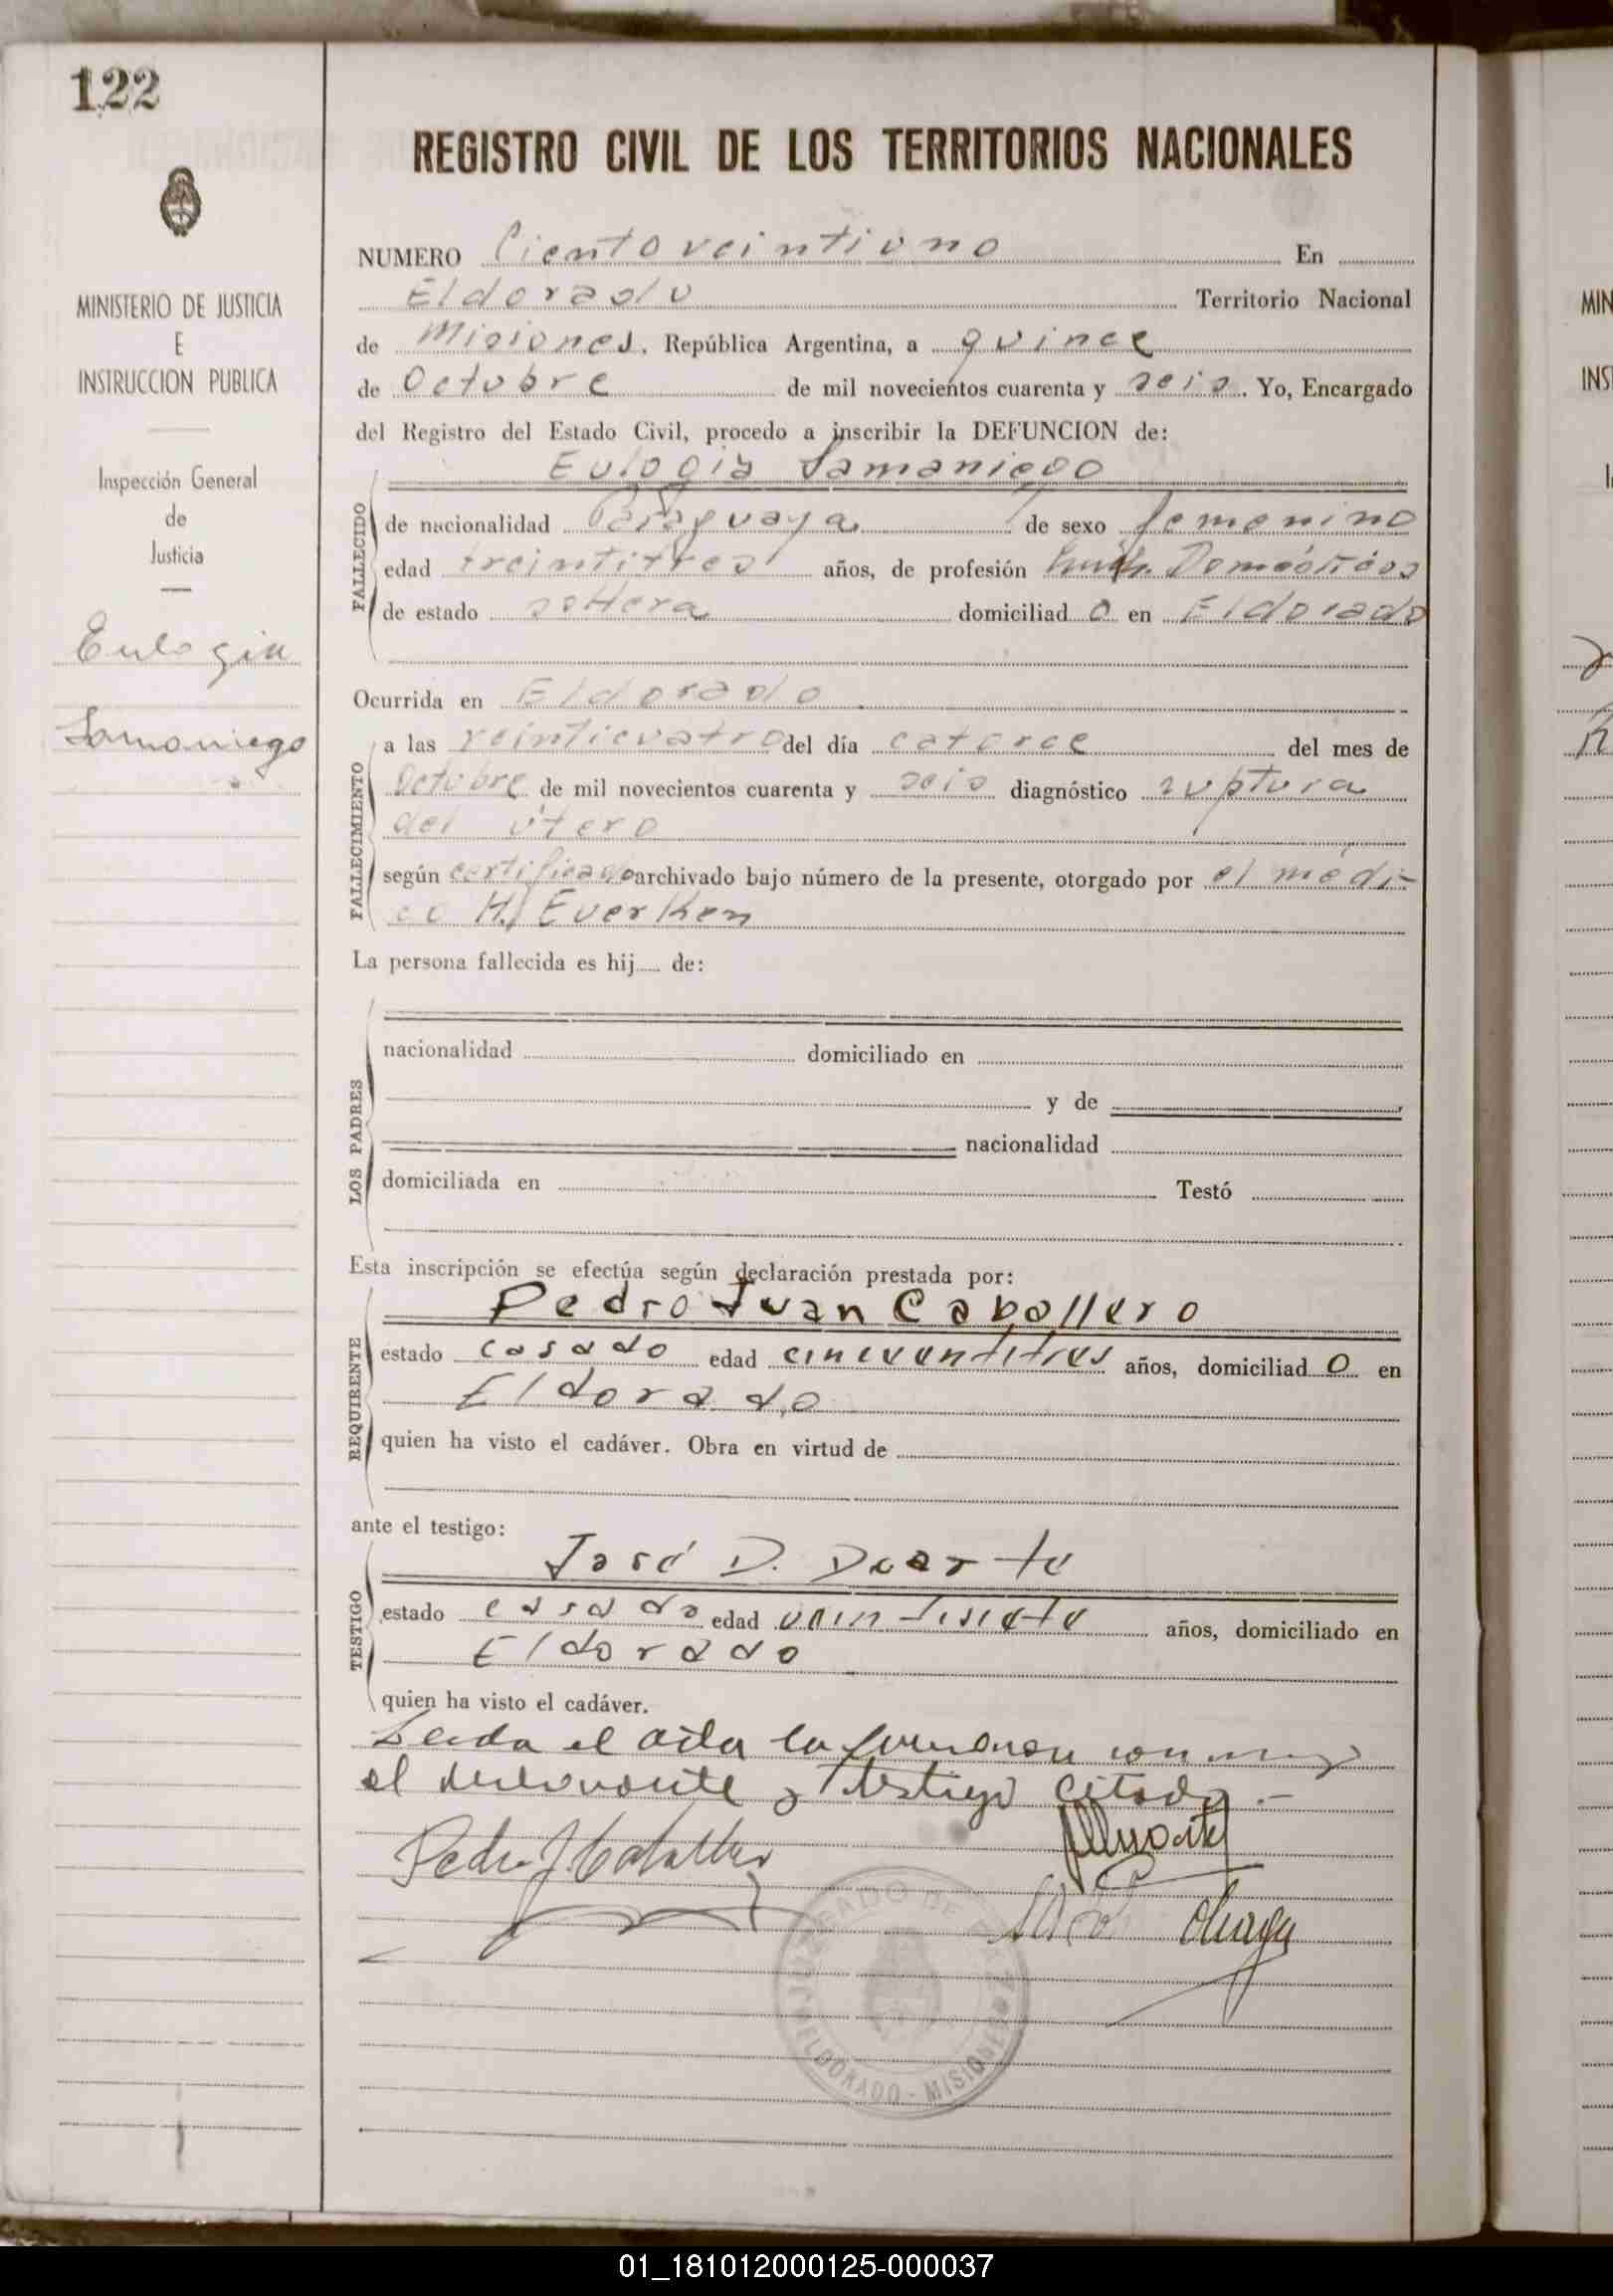 122
REGISTRO CIVIL DE LOS TERRITORIOS NACIONALES
MINISTERIO DE JUSTICIA
E
INSTRUCCION PUBLICA
Inspección General
de
Justicia
Eulogia
Samaniego
NUMERO Ciento veintiuno En
Eldorado Territorio Nacional
de Misiones. República Argentina, a quince
de Octubre de mil novecientos cuarenta y seis. Yo, Encargado
del Registro del Estado Civil, procedo a inscribir la DEFUNCION de:
Eulogia Samaniego
FALLECIDO
de nacionalidad Paraguaya de sexo femenino
edad treintitres años, de profesión Domésticos
de estado soltera domiciliad o en Eldorado
Ocurrida en Eldorado
FALLECIMIENTO
a las veinticuatro del día catorce del mes de
Octubre de mil novecientos cuarenta y seis diagnóstico ruptura
del útero
según certificado archivado bajo número de la presente, otorgado por el médi-
co H. Everken
La persona fallecida es hij de:
LOS PADRES
nacionalidad domiciliado en
y de
nacionalidad
domiciliada en Testó
Esta inscripción se efectúa según declaración prestada por:
Pedro Juan Caballero
REQUIRENTE
estado casado edad cincuentitres años, domiciliad o en
Eldorado
quien ha visto el cadáver. Obra en virtud de
ante el testigo:
José D. Duarte
TESTIGO
estado casado edad veintisiete años, domiciliado en
Eldorado
quien ha visto el cadáver.
Leida el acta la firmaron con
el declarante y testigo citado.-
Pedro J. Caballero
JUZGADO DE PAZ
ELDORADO - MISIONES
MIN
INS
01_181012000125-000037